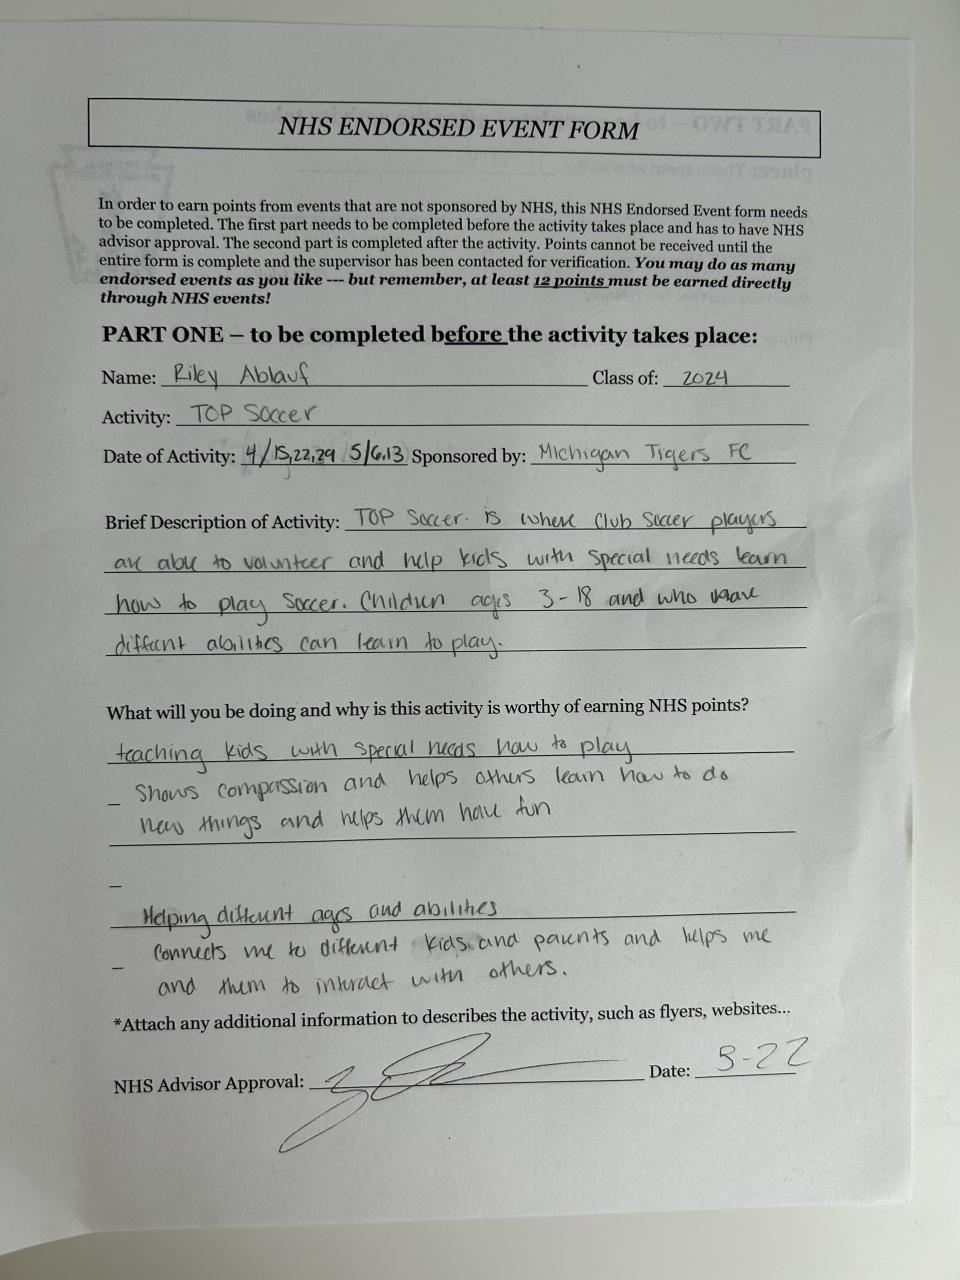 NHS ENDORSED EVENT FORM
In order to earn points from events that are not sponsored by NHS, this NHS Endorsed Event form needs
to be completed. The first part needs to be completed before the activity takes place and has to have NHS
advisor approval. The second part is completed after the activity. Points cannot be received until the
entire form is complete and the supervisor has been contacted for verification. You may do as many
endorsed events as you like --- but remember, at least 12 points must be earned directly
through NHS events!
PART ONE – to be completed before the activity takes place:
Name: Riley Ablauf Class of: 2024
Activity: TOP Soccer
Date of Activity: 4/15,22,29 5/6,13 Sponsored by: Michigan Tigers FC
Brief Description of Activity: TOP Soccer. is where Club Soccer players
are able to volunteer and help kids with special needs learn
how to play Soccer. Children ages 3-18 and who have
different abilities can learn to play.
What will you be doing and why is this activity is worthy of earning NHS points?
teaching kids with special needs how to play
– Shows compassion and helps others learn how to do
new things and helps them have fun
–
Helping different ages and abilities
– Connects me to different kids and parents and helps me
and them to interact with others.
*Attach any additional information to describes the activity, such as flyers, websites...
NHS Advisor Approval: Date: 3-22